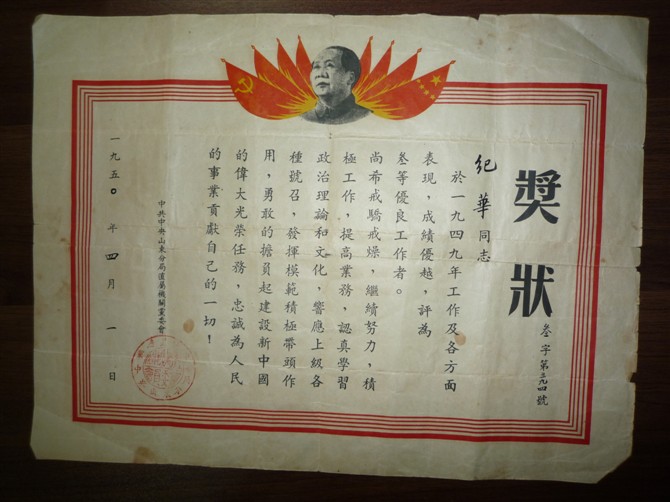 獎狀
叁字第三九四號
紀華同志
於一九四九年工作及各方面
表現，成績優越，評為
叁等優良工作者。
尚希戒驕戒燥，繼續努力，積
極工作，提高業務，認真學習
政治理論和文化，響應上級各
種號召，發揮模範積極帶頭作
用，勇敢的擔負起建設新中國
的偉大光榮任務，忠誠為人民
的事業貢獻自己的一切！
中共中央山東分局直屬機關黨委會
一九五〇年四月一日